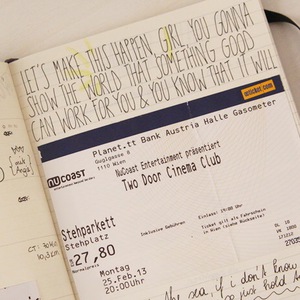 LET'S MAKE THIS HAPPEN, GIRL YOU GONNA
SHOW THE WORLD THAT SOMETHING GOOD
CAN WORK FOR YOU & YOU KNOW THAT IT WILL
oeticket.com
Planet.tt Bank Austria Halle Gasometer
Guglgasse 8
1110 Wien
nucoast
NuCoast Entertainment präsentiert
Two Door Cinema Club
Stehparkett
Stehplatz
Inklusive Gebühren
Einlass: 19:00 Uhr
Ticket gilt als Fahrschein
in Wien (siehe Rückseite)
27,80
Normalpreis
Montag
25.Feb.13
20:00Uhr
the sea, if i don't know
just hold